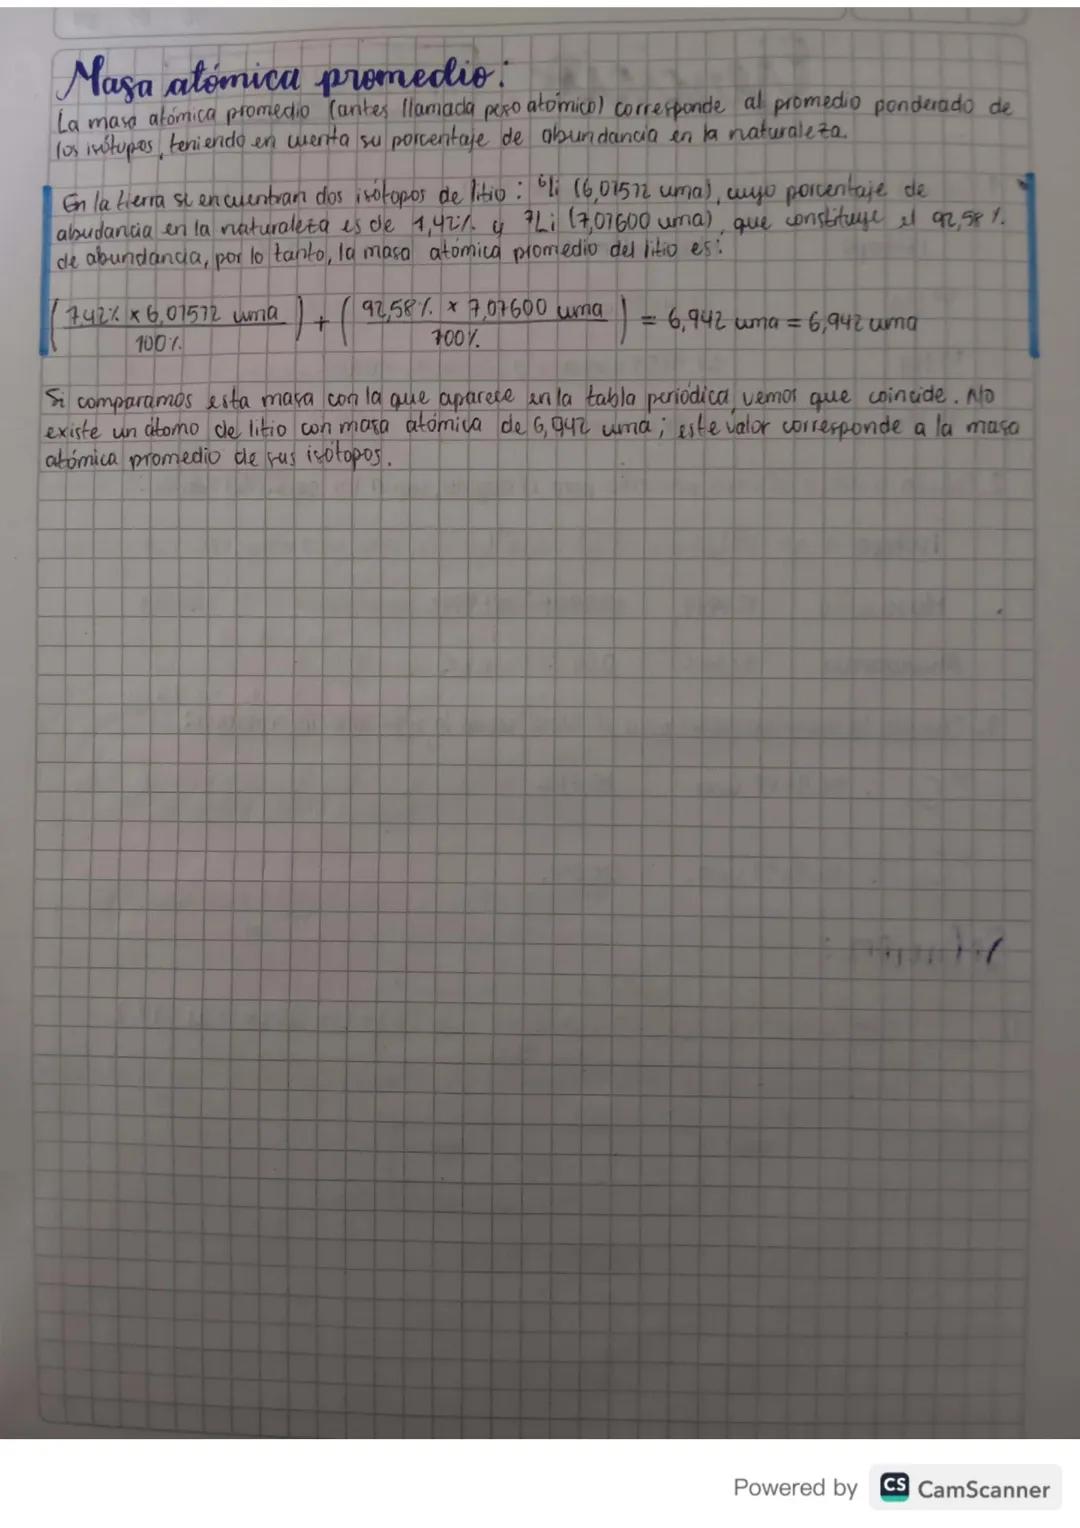 Masa atómica promedio:
La masa atómica promedio (antes llamada peso atómico) corresponde al promedio ponderado de
los isótopos, teniendo en cuenta su porcentaje de abundancia en la naturaleza.
En la tierra se encuentran dos isótopos de litio: ⁶Li (6,01512 uma), cuyo porcentaje de
abudancia en la naturaleza es de 7,42% y ⁷Li (7,01600 uma), que constituye el 92,58%
de abundancia, por lo tanto, la masa atómica promedio del litio es:
(7,42% x 6,01512 uma / 100%) + (92,58% x 7,01600 uma / 100%) = 6,942 uma = 6,942 uma
Si comparamos esta masa con la que aparece en la tabla periódica, vemos que coincide. No
existe un átomo de litio con masa atómica de 6,942 uma; este valor corresponde a la masa
atómica promedio de sus isótopos.
Powered by CS CamScanner